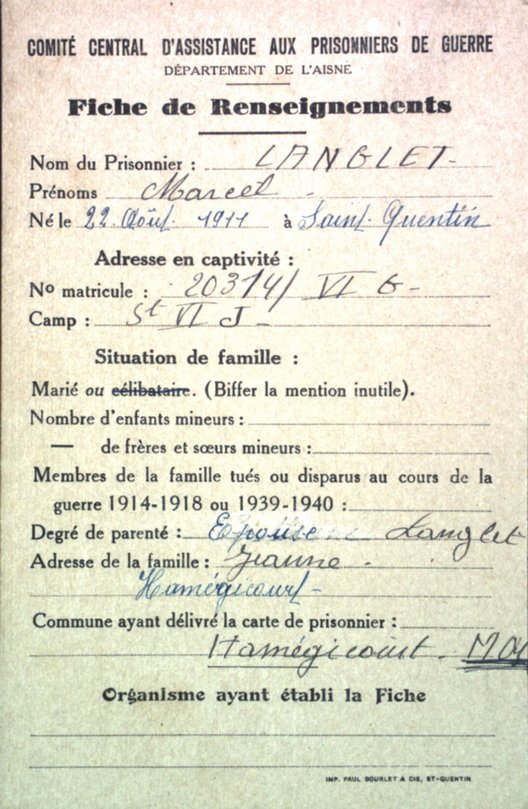 COMITÉ CENTRAL D'ASSISTANCE AUX PRISONNIERS DE GUERRE
DÉPARTEMENT DE L'AISNE
Fiche de Renseignements
Nom du Prisonnier : LANGLET
Prénoms Marcel
Né le 22 Août 1911 à Saint-Quentin
Adresse en captivité :
No matricule : 20314/ VI G
Camp : St VI J
Situation de famille :
Marié ou célibataire. (Biffer la mention inutile).
Nombre d'enfants mineurs :
— de frères et sœurs mineurs :
Membres de la famille tués ou disparus au cours de la
guerre 1914-1918 ou 1939-1940 :
Degré de parenté : Epouse Langlet
Adresse de la famille : Jeanne
Hamégicourt
Commune ayant délivré la carte de prisonnier :
Hamégicourt - MOY
Organisme ayant établi la Fiche
IMP. PAUL BOURLET & CIE, ST-QUENTIN